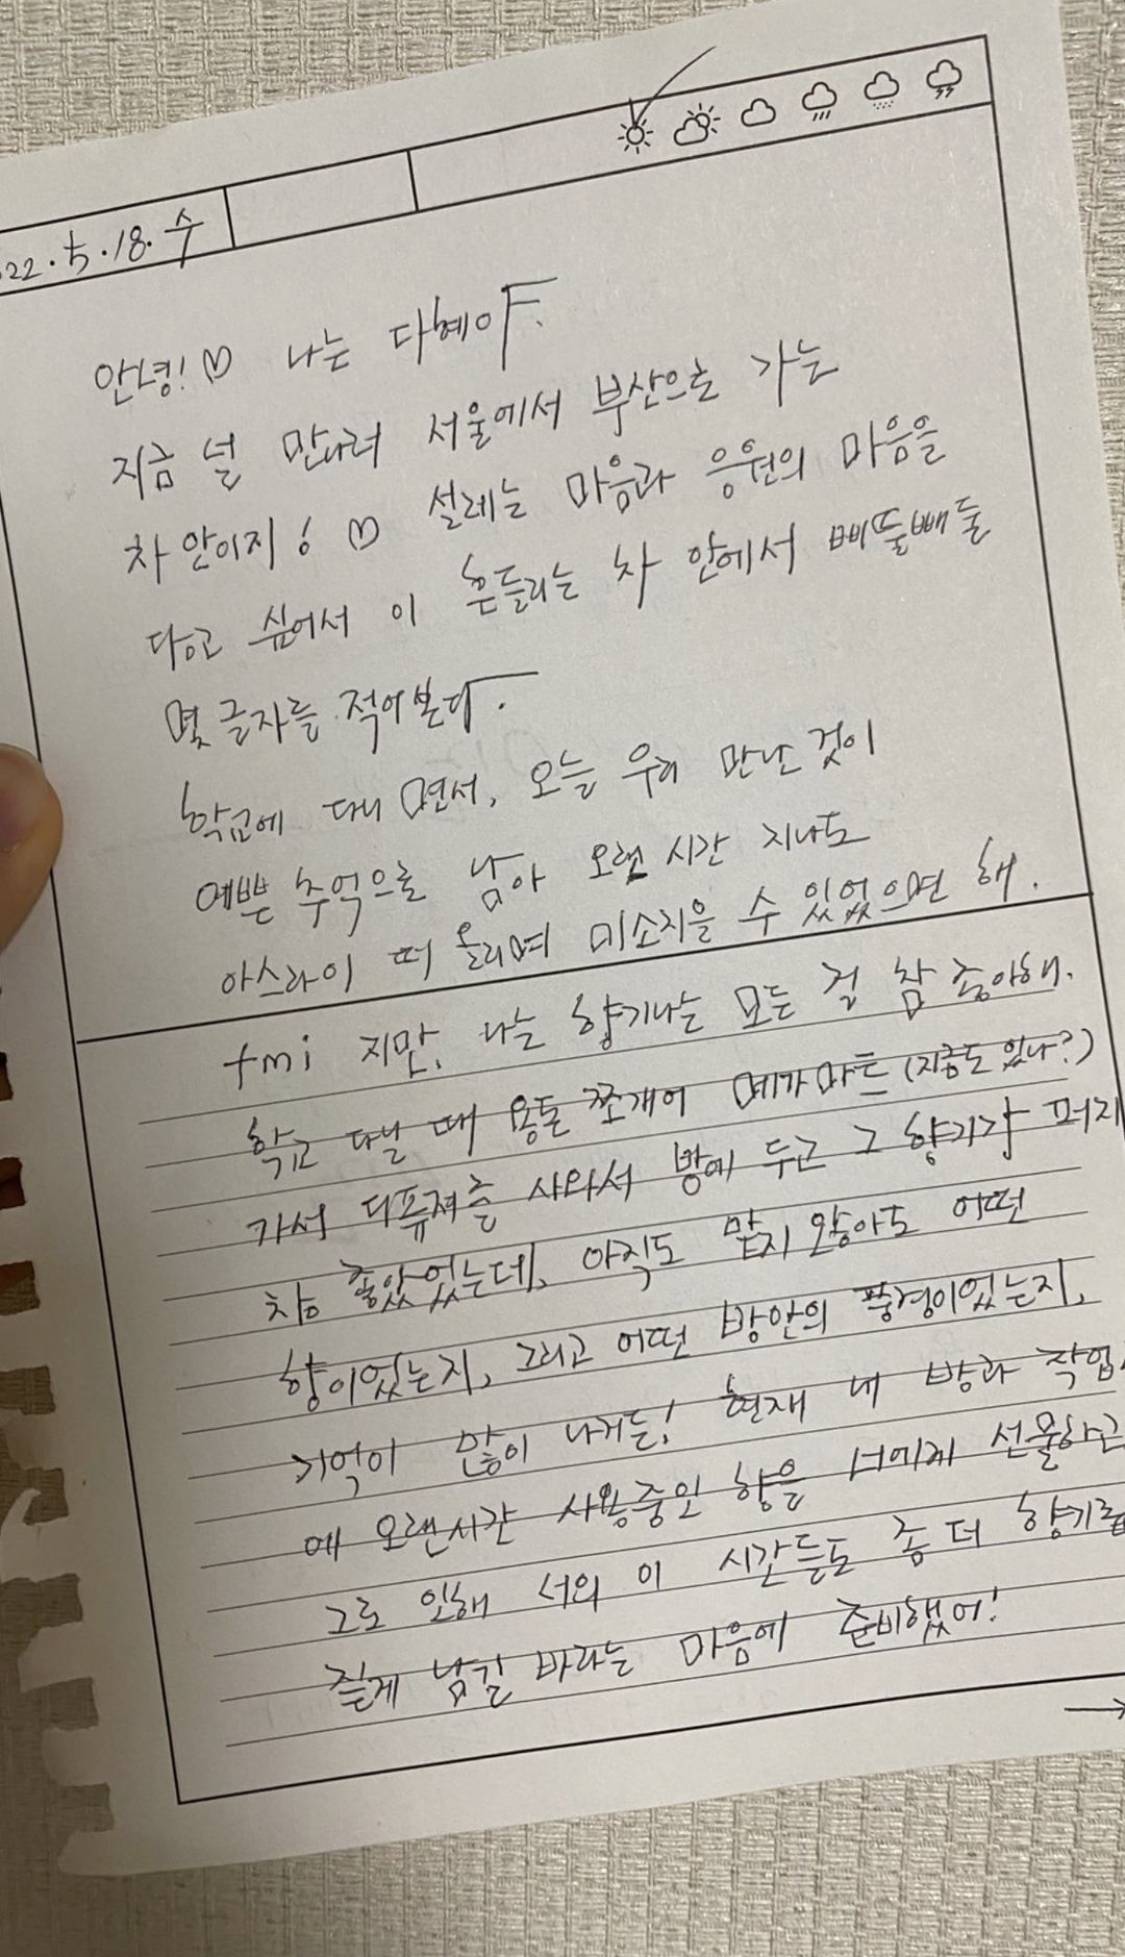 022.5.18.수
안녕!♡ 나는 다혜야.
지금 널 만나러 서울에서 부산으로 가는
차 안이지! ♡ 설레는 마음과 응원의 마음을
담고 싶어서 이 흔들리는 차 안에서 삐뚤빼둘
몇 글자를 적어본다.
학교에 다니면서, 오늘 우리 만난 것이
예쁜 추억으로 남아 오랜 시간 지나도
아스라이 떠올리며 미소지을 수 있었으면 해.
tmi 지만, 나는 향기나는 모든 걸 참 좋아해.
학교 다닐 때 용돈 쪼개어 메가마트 (지금도 있나?)
가서 디퓨져를 사와서 방에 두고 그 향기가 퍼지
참 좋았었는데, 아직도 맡지 않아도 어떤
향이었는지, 그리고 어떤 방안의 풍경이었는지,
기억이 많이 나거든! 현재 내 방과 작업
에 오랜시간 사용중인 향을 너에게 선물하고
그로 인해 서의 이 시간들도 좀 더 향기로
질게 남길 바라는 마음에 준비했어!
→